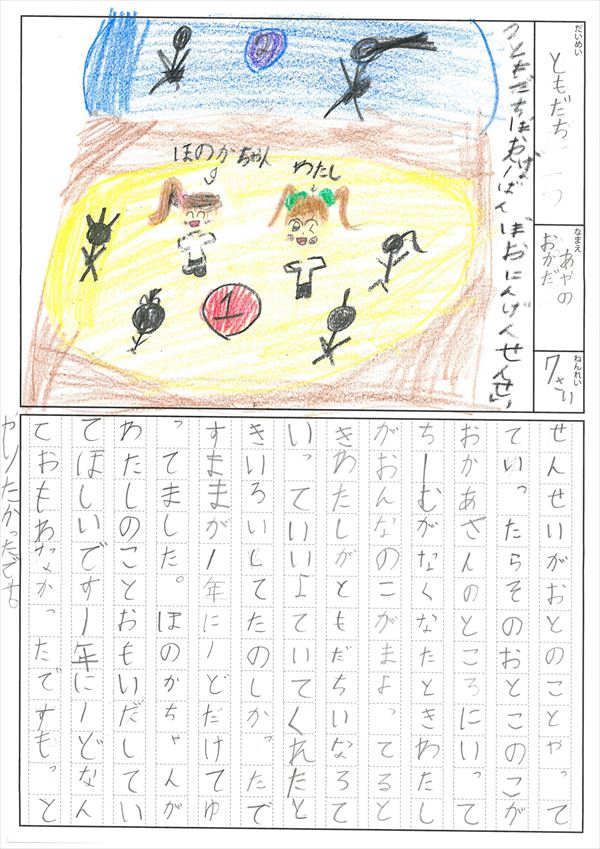 だいめい
ともだち
なまえ
おかだ
あやの
ねんれい
7さい
ほのかちゃん
わたし
2
1
せんせいがおとのことやって
ていったらそのおとこのこが
おかあさんのところにいって
ちーむがなくなたときわたし
がおんなのこがまよってると
きわたしがともだちいなろて
いっていいよていてくれたと
きいろいしてたのしかったで
すままが1年に1どだけてゆ
ってました。ほのかちゃんが
わたしのことおもいだしてい
てほしいです1年に1どなん
ておもわなかったですもっと
やりたかったです。